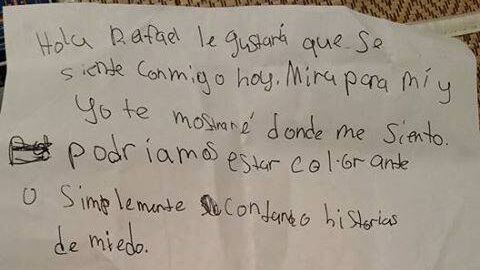 Hola Rafael le gustará que se
siente conmigo hoy. Mira para mí y
yo te mostraré donde me siento.
podriamos estar col·orante
o simplemente contando historias
de miedo.